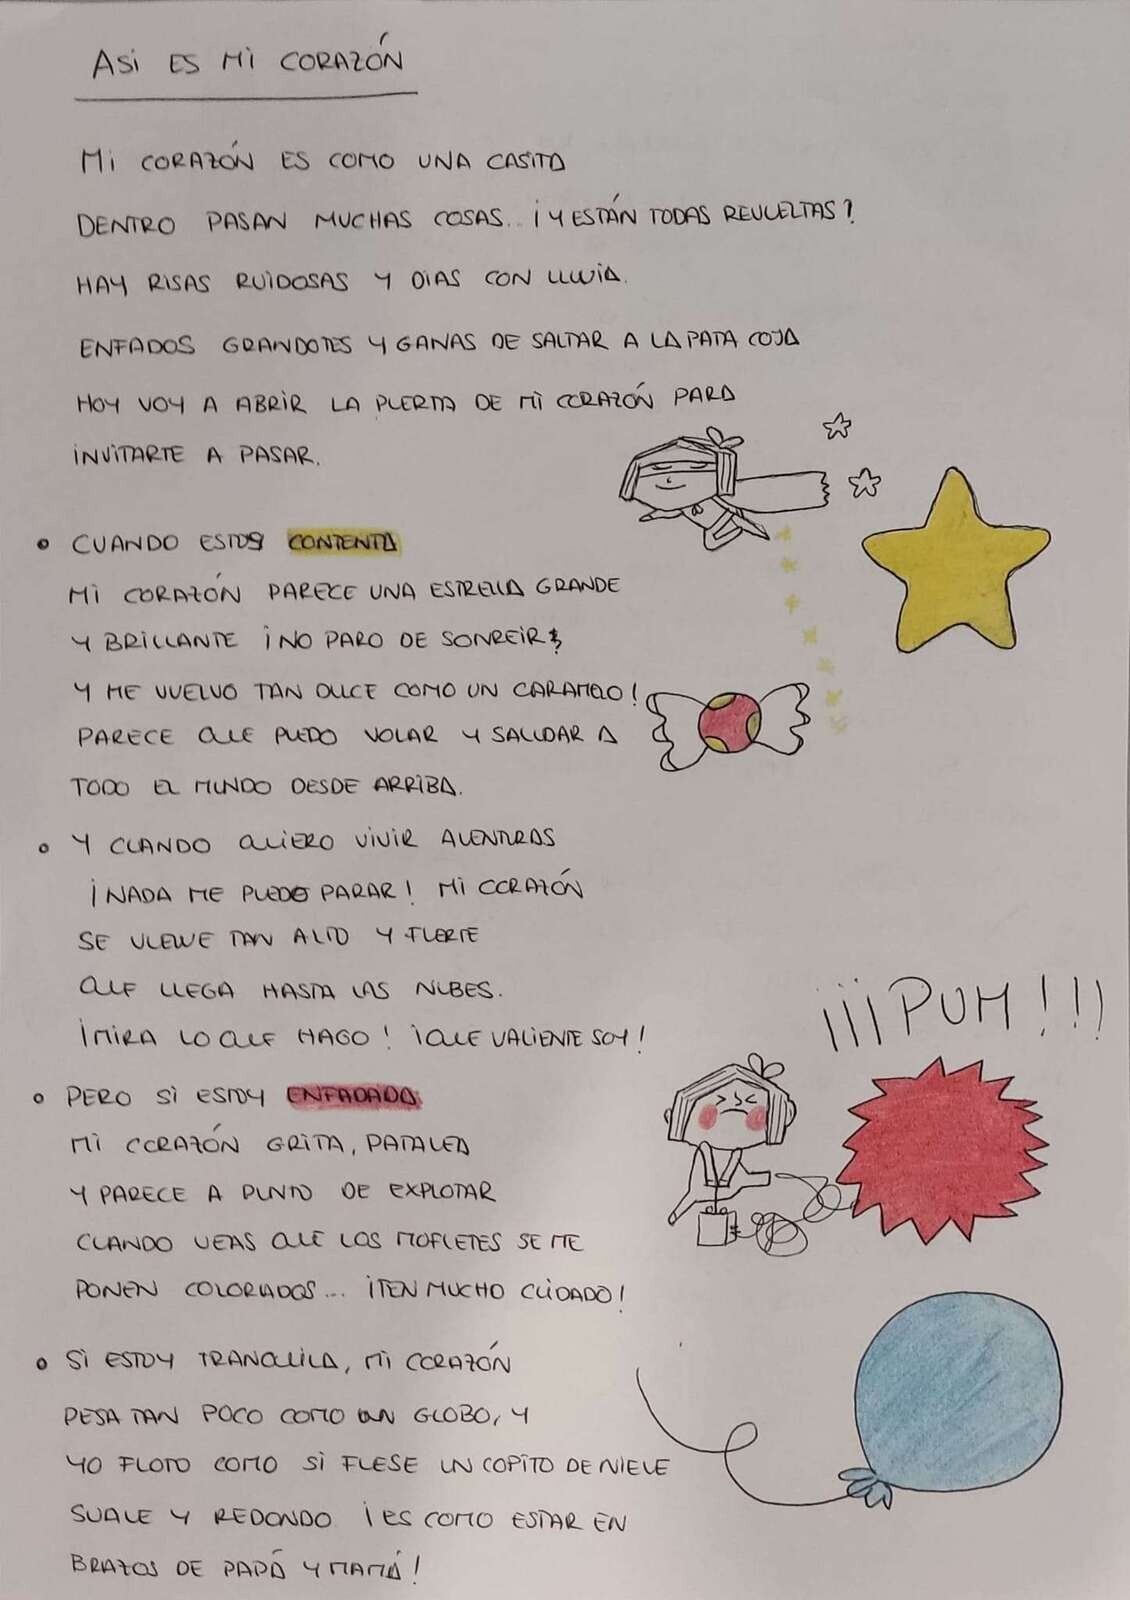 ASI ES MI CORAZÓN
MI CORAZÓN ES COMO UNA CASITA
DENTRO PASAN MUCHAS COSAS... ¡Y ESTÁN TODAS REVUELTAS?
HAY RISAS RUIDOSAS Y DIAS CON LLUVIA.
ENFADOS GRANDOTES Y GANAS DE SALTAR A LA PATA COJA
HOY VOY A ABRIR LA PUERTA DE MI CORAZÓN PARA
INVITARTE A PASAR.
• CUANDO ESTOY CONTENTA
MI CORAZÓN PARECE UNA ESTRELLA GRANDE
Y BRILLANTE ¡NO PARO DE SONREIR
Y ME VUELVO TAN DULCE COMO UN CARAMELO!
PARECE QUE PUEDO VOLAR Y SALUDAR A
TODO EL MUNDO DESDE ARRIBA.
• Y CUANDO QUIERO VIVIR AVENTURAS
¡NADA ME PUEDE PARAR! MI CORAZÓN
SE VUELVE TAN ALTO Y FUERTE
QUE LLEGA HASTA LAS NUBES.
¡MIRA LO QUE HAGO! ¡QUE VALIENTE SOY!
¡¡¡PUM!!!
• PERO SI ESTOY ENFADADA
MI CORAZÓN GRITA, PATALEA
Y PARECE A PUNTO DE EXPLOTAR
CUANDO VEAS QUE LOS MOFLETES SE ME
PONEN COLORADOS... ¡TEN MUCHO CUIDADO!
• SI ESTOY TRANQUILA, MI CORAZÓN
PESA TAN POCO COMO UN GLOBO, Y
YO FLOTO COMO SI FUESE UN COPITO DE NIEVE
SUAVE Y REDONDO ¡ES COMO ESTAR EN
BRAZOS DE PAPÁ Y MAMÁ!